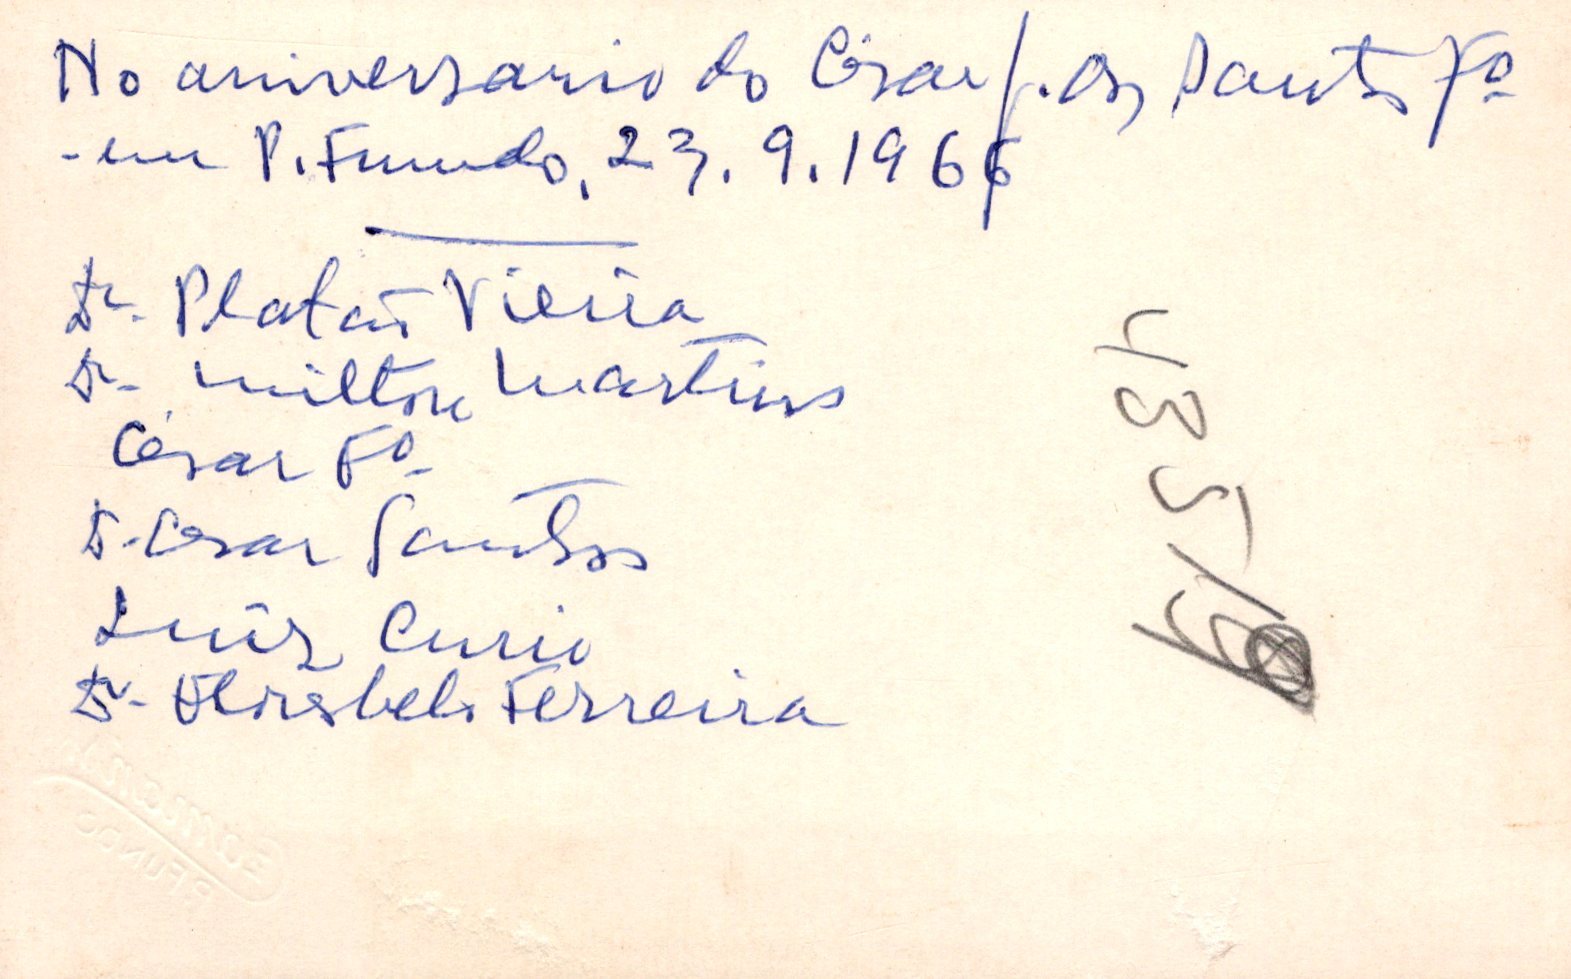 No aniversario do César J. dos Santos Fº
- em P. Fundo, 23.9.1966
Dr. Platão Vieira
Dr. Milton Martins
César Fº
Dr. Cesar Santos
Luiz Curio
Dr. Floresbelo Ferreira
435/9
P. FUNDO